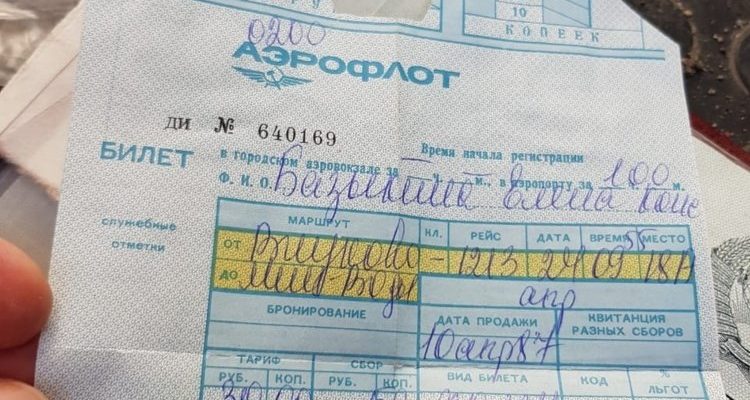 10
КОПЕЕК
0200
АЭРОФЛОТ
ДИ № 640169
Время начала регистрации
БИЛЕТ в городском аэровокзале за — ч. — м., в аэропорту за 100 м.
Ф. И. О.
служебные отметки
МАРШРУТ КЛ. РЕЙС ДАТА ВРЕМЯ МЕСТО
ОТ Внуково – 1213 24 09 55 18А
ДО Мин Воды апр
БРОНИРОВАНИЕ ДАТА ПРОДАЖИ КВИТАНЦИЯ РАЗНЫХ СБОРОВ
10 апр 87
ТАРИФ СБОР ВИД БИЛЕТА КОД % ЛЬГОТ
РУБ. КОП. РУБ. КОП.